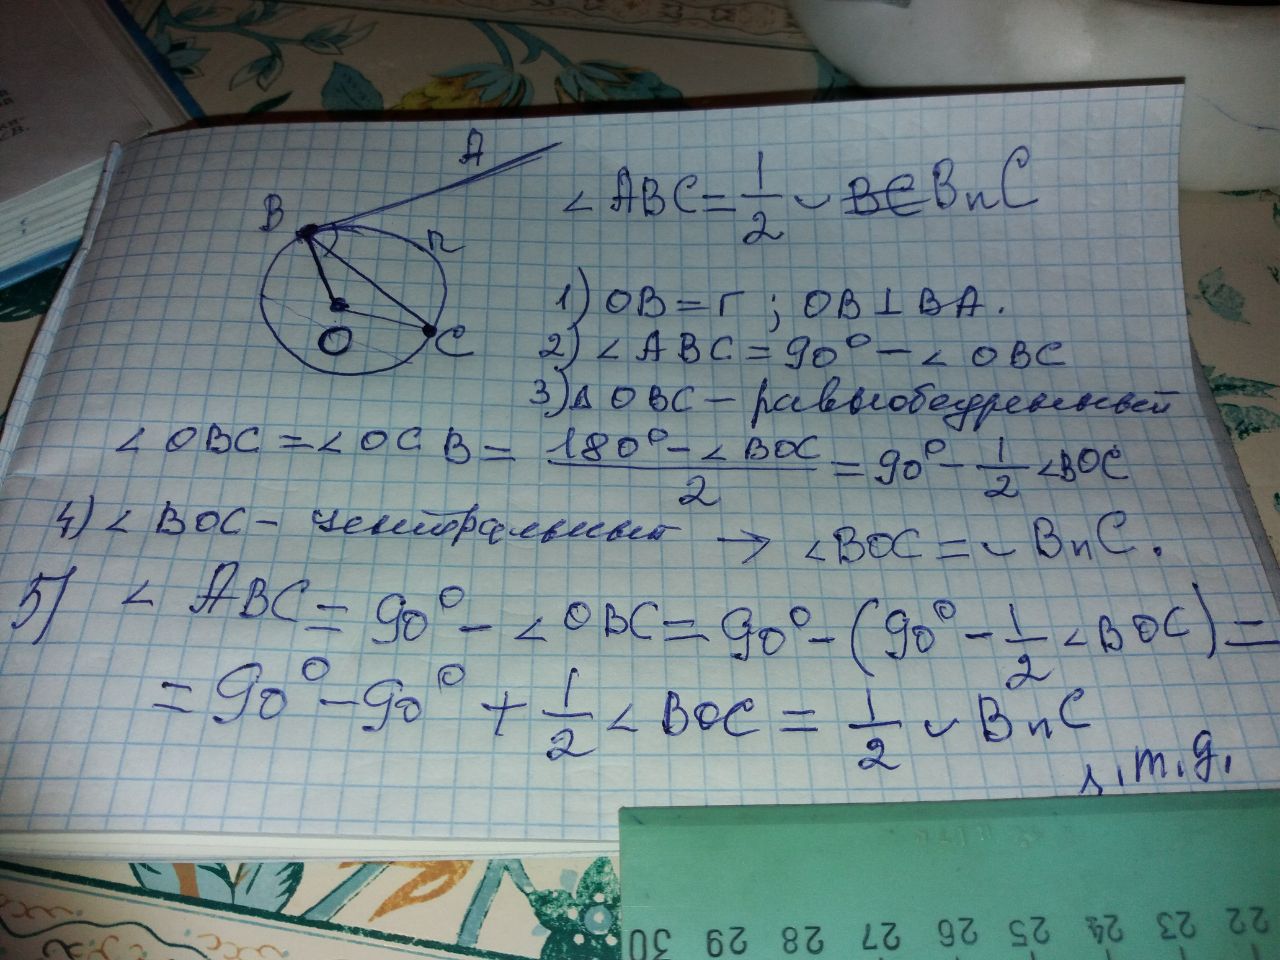 A
B
n
O
C
∠ABC = 1/2 ◡ BnC
1) OB = r ; OB ⊥ BA.
2) ∠ABC = 90° - ∠OBC
3) Δ OBC - равнобедренный
∠OBC = ∠OCB = (180° - ∠BOC)/2 = 90° - 1/2 ∠BOC
4) ∠BOC - центральный → ∠BOC = ◡ BnC.
5) ∠ABC = 90° - ∠OBC = 90° - (90° - 1/2 ∠BOC) =
= 90° - 90° + 1/2 ∠BOC = 1/2 ◡ BnC
ч.т.д.
30 29 28 27 26 25 24 23 22